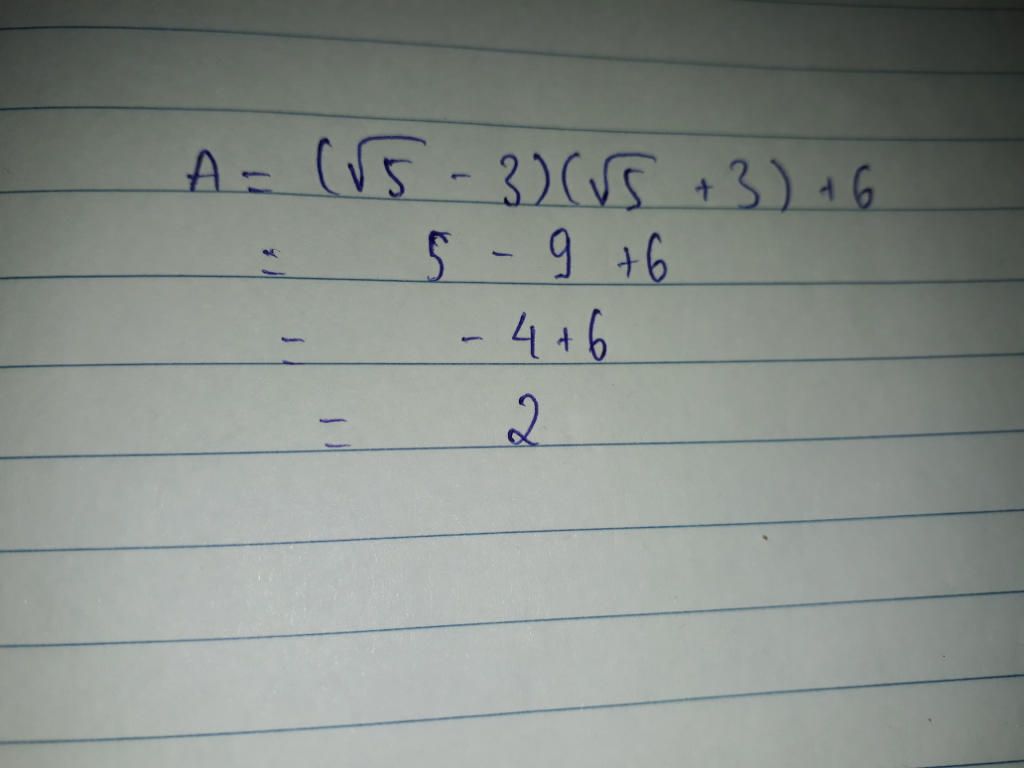 A = (√5 - 3)(√5 + 3) + 6
= 5 - 9 + 6
= - 4 + 6
= 2